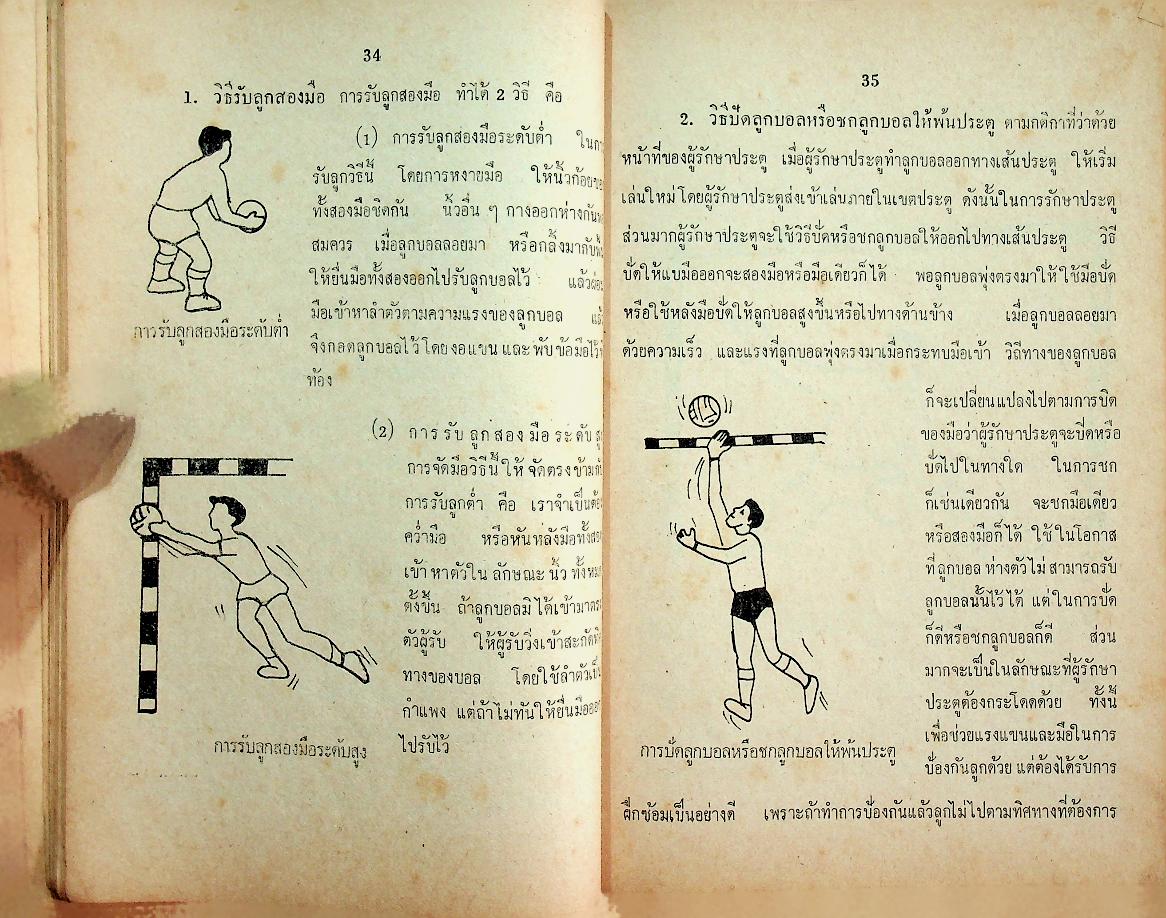 34
1. วิธีรับลูกสองมือ การรับลูกสองมือ ทำได้ 2 วิธี คือ
(1) การรับลูกสองมือระดับต่ำ
รับลูกวิธีนี้ โดยการหงายมือ ให้นิ้วก้อย
ทั้งสองมือชิดกัน นิ้วอื่น ๆ กางออกห่างกัน
สมควร เมื่อลูกบอลลอยมา หรือกลิ้งมากับ
ให้ยื่นมือทั้งสองออกไปรับลูกบอลไว้ แล้ว
มือเข้าหาลำตัวตามความแรงของลูกบอล
การรับลูกสองมือระดับต่ำ
จึงกอดลูกบอลไว้โดยงอแขน และพับข้อมือไว้
ท้อง
(2) การรับลูกสองมือระดับ
การจัดมือวิธีนี้ ให้จัดตรงข้าม
การรับลูกต่ำ คือ เราจำเป็น
คว่ำมือ หรือหันหลังมือทั้ง
เข้าหาตัวใน ลักษณะ นิ้ว
ตั้งขึ้น ถ้าลูกบอลมิได้เข้ามา
ตัวผู้รับ ให้ผู้รับวิ่งเข้าสะกัด
ทางของบอล โดยใช้ลำตัว
กำแพง แต่ถ้าไม่ทันให้ยื่นมือ
ไปรับไว้
การรับลูกสองมือระดับสูง
35
2. วิธีปัดลูกบอลหรือชกลูกบอลให้พ้นประตู ตามกติกาที่ว่าด้วย
หน้าที่ของผู้รักษาประตู เมื่อผู้รักษาประตูทำลูกบอลออกทางเส้นประตู ให้เริ่ม
เล่นใหม่โดยผู้รักษาประตูส่งเข้าเล่นภายในเขตประตู ดังนั้นในการรักษาประตู
ส่วนมากผู้รักษาประตูจะใช้วิธีปัดหรือชกลูกบอลให้ออกไปทางเส้นประตู วิธี
ปัดให้แบมือออกจะสองมือหรือมือเดียวก็ได้ พอลูกบอลพุ่งตรงมาให้ใช้มือปัด
หรือใช้หลังมือปัดให้ลูกบอลสูงขึ้นหรือไปทางด้านข้าง เมื่อลูกบอลลอยมา
ด้วยความเร็ว และแรงที่ลูกบอลพุ่งตรงมาเมื่อกระทบมือเข้า วิถีทางของลูกบอล
ก็จะเปลี่ยนแปลงไปตามการบิด
ของมือว่าผู้รักษาประตูจะบิดหรือ
ปัดไปในทางใด ในการชก
ก็เช่นเดียวกัน จะชกมือเดียว
หรือสองมือก็ได้ ใช้ในโอกาส
ที่ลูกบอลห่างตัวไม่สามารถรับ
ลูกบอลนั้นไว้ได้ แต่ในการปัด
ก็ดีหรือชกลูกบอลก็ดี ส่วน
มากจะเป็นในลักษณะที่ผู้รักษา
ประตูต้องกระโดดด้วย ทั้งนี้
เพื่อช่วยแรงแขนและมือในการ
ป้องกันลูกด้วย แต่ต้องได้รับการ
การปัดลูกบอลหรือชกลูกบอลให้พ้นประตู
ฝึกซ้อมเป็นอย่างดี เพราะถ้าทำการป้องกันแล้วลูกไม่ไปตามทิศทางที่ต้องการ